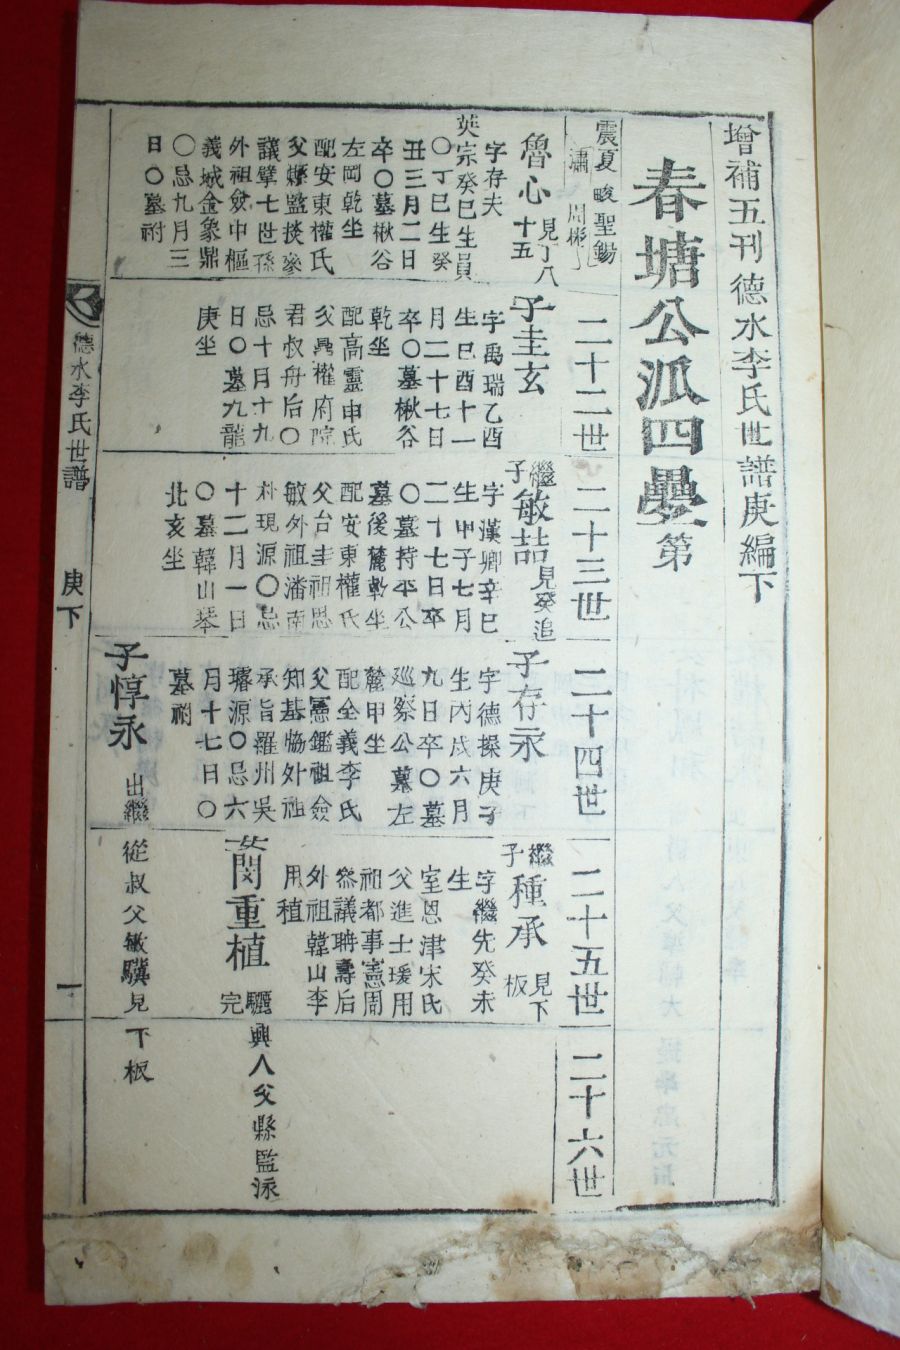 增補五刊德水李氏世譜庚編下
春塘公派四疊第
震夏 畯 聖錫
潚 周彬
魯心 見丁八十五
字存夫
英宗癸巳生員
〇丁巳生癸
丑三月二日
卒〇墓楸谷
左岡乾坐
配安東權氏
父爗監掞參
議擘七世孫
外祖僉中樞
義城金象鼎
〇忌九月三
日〇墓祔
二十二世
子圭玄
字禹瑞乙酉
生巳酉十一
月二十七日
卒〇墓楸谷
乾坐
配高靈申氏
父興權府院
君叔舟后〇
忌十月十九
日〇墓九龍
庚坐
二十三世
繼子敏喆 見癸追
字漢卿辛巳
生甲子七月
二十七日卒
〇墓持平公
墓後麓乾坐
配安東權氏
父台圭祖思
敏外祖潘南
朴現源〇忌
十二月一日
〇墓韓山琴
北亥坐
二十四世
子存永
字德操庚子
生丙戌六月
九日卒〇墓
巡察公墓左
麓甲坐
配全義李氏
父憲鑑祖僉
知基協外祖
承旨羅州吳
璿源〇忌六
月十七日〇
墓祔
子惇永 出繼從叔父敏驥見下板
二十五世
繼子種承 見下板
字繼先癸未
生
室恩津宋氏
父進士瑗用
祖都事憲周
叅議聃壽后
外祖韓山李
用稙
女閔重植 驪興人父縣監泳完
二十六世
德水李氏世譜 庚下 一